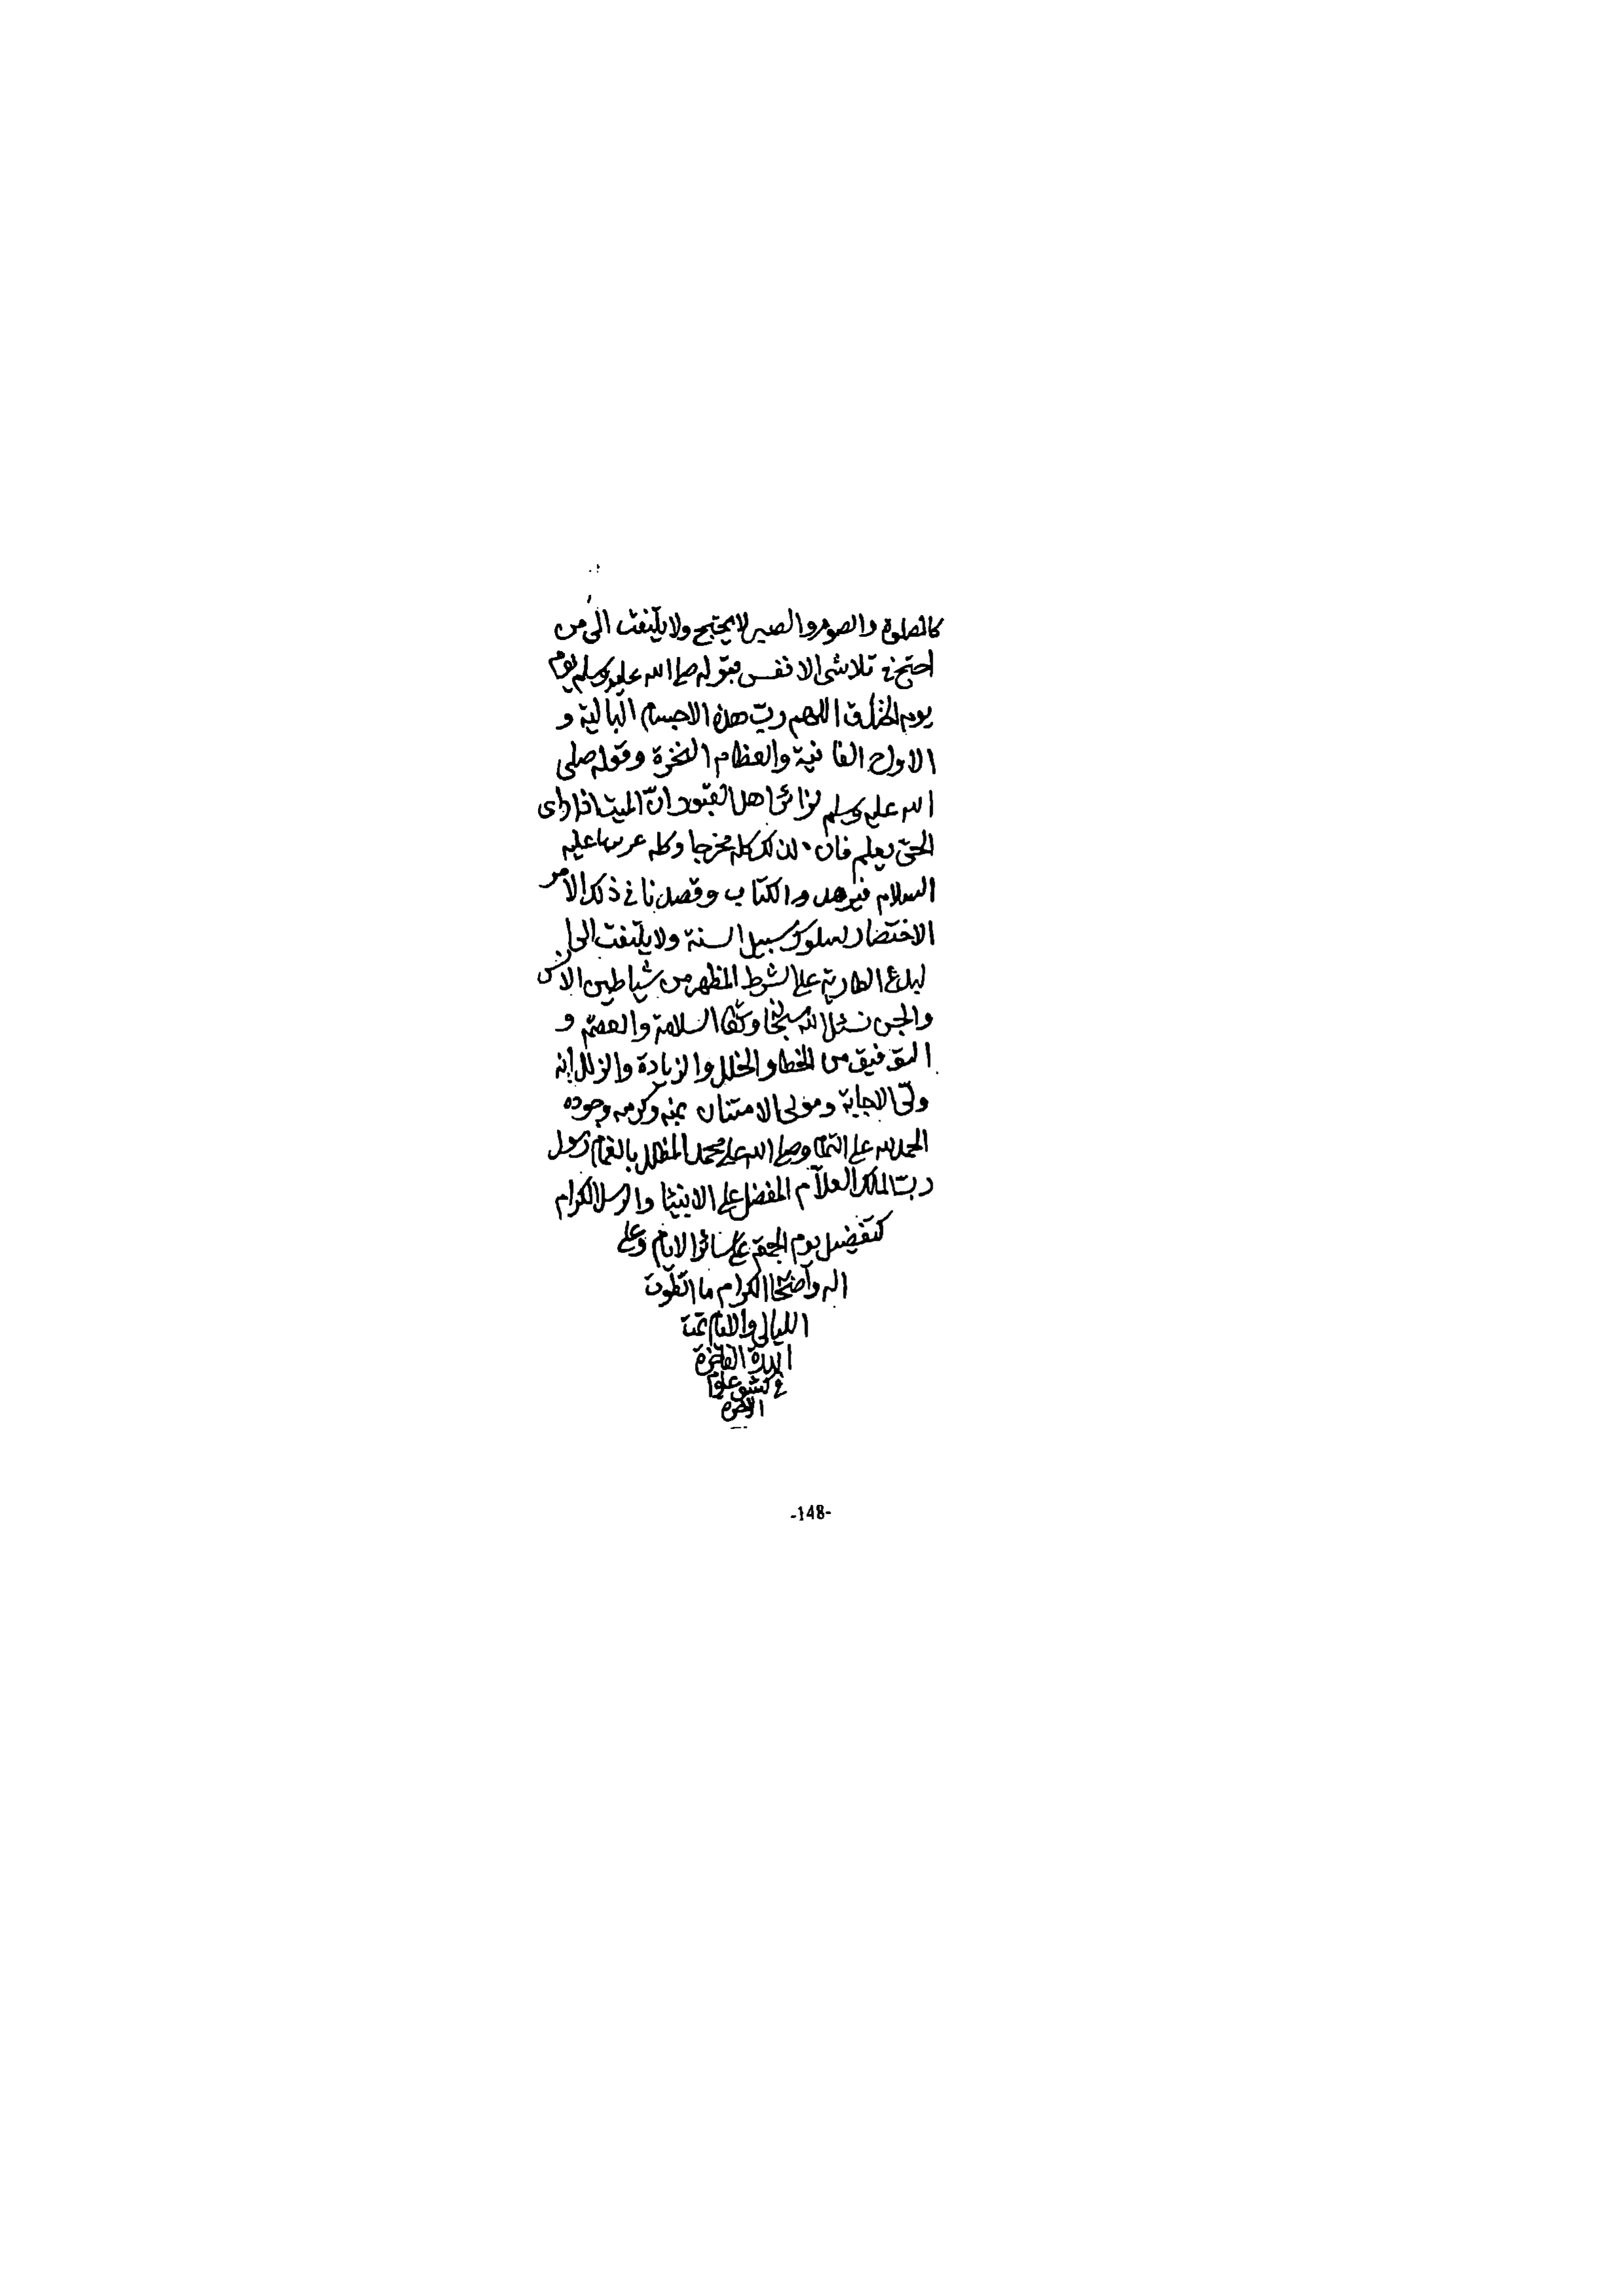 كالصلوة والصوم والصير لا يحتج ولا يلتفت الى من
احتج في تلاشى الا نفس بقوله صلى الله عليه وسلم يوم
يوم الخندق اللهم رب هذه الاجسام البالية و
الارواح الفا نية والعظام النخرة وقوله صلى
الله عليه وسلم لزائر اهل القبور ان الميت اذا رأى
الحى يعلم فان لذلك كله مخرجا وكله
السلام والكتاب وقصدنا في ذلك الأمر
الاختصار لسلوك سبيل السنة ولا يلتفت الى
البدع الطارية على الشرط المظهر من شياطين الانس
والجن نسئل الله سبحانه وتعالى السلامة والعصمة و
التوفيق من الخطا والخلل والزيادة والزلل إنه
ولى الاجابة ومولى الامتنان بمنه وكرمه وجوده
الحمد لله على التمام وصلى الله على محمد المظلل بالغمام رسول
رب الملك العلآم المفضل على الانبيا والرسل الكرام
كتفضيل يوم الجمعة على سائر الايام وعلى
اله وأصحابه الكرام ما
الليالى والايام تمت
الدرة الفاخرة
في كشف علوم
الاخرة
-148-